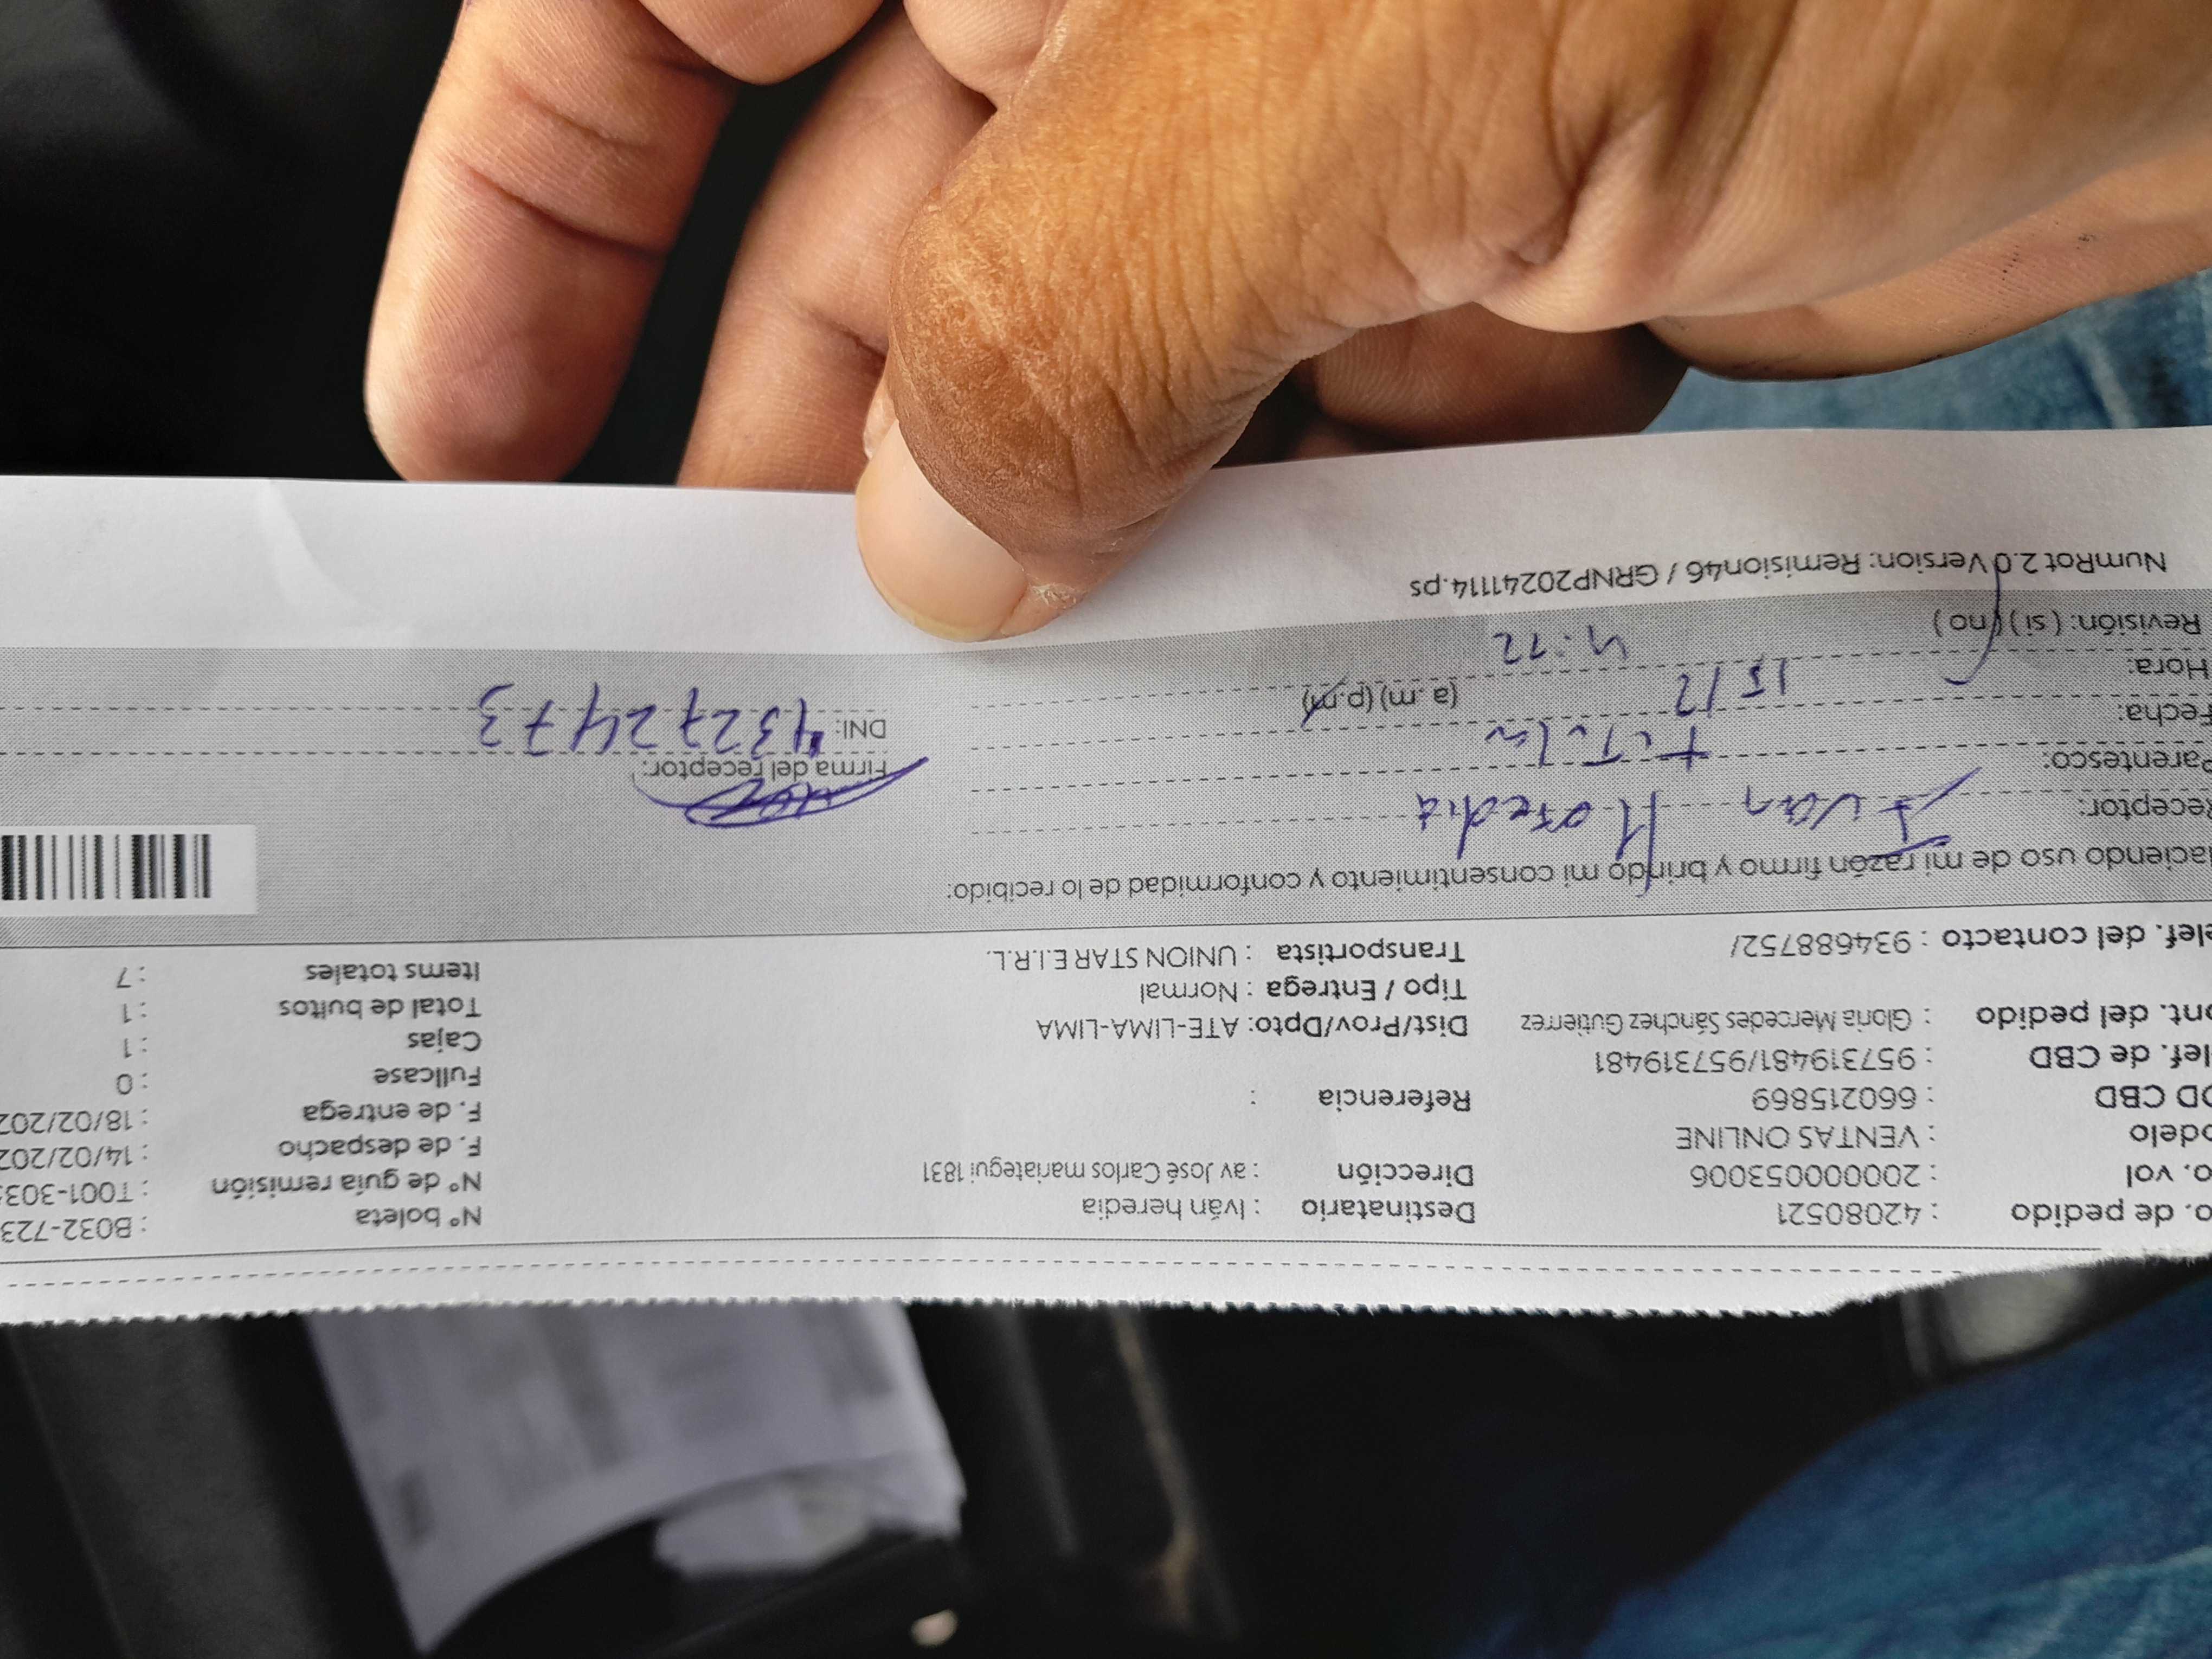 o. de pedido : 42080521 Destinatario : Iván heredia Nº boleta : B032-723
o. vol : 20000053006 Dirección : av José Carlos mariategui 1831 Nº de guía remisión : T001-303
odelo : VENTAS ONLINE F. de despacho : 14/02/202
OD CBD : 660215869 Referencia : F. de entrega : 18/02/202
lef. de CBD : 957319481/957319481 Fullcase : 0
ont. del pedido : Gloria Mercedes Sánchez Gutierrez Dist/Prov/Dpto: ATE-LIMA-LIMA Cajas : 1
Tipo / Entrega : Normal Total de bultos : 1
elef. del contacto : 934688752/ Transportista : UNION STAR E.I.R.L. Items totales : 7
Haciendo uso de mi razón firmo y brindo mi consentimiento y conformidad de lo recibido:
Receptor: Ivan Heredia
Firma del receptor:
Parentesco:
DNI: 43272473
Fecha: 15/2
Hora: 4:12 (a.m) (p.m)
Revisión: (si) (no)
NumRot 2.0 Version: Remision46 / GRNP20241114.ps